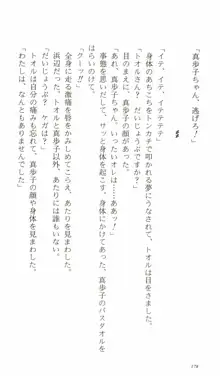 「真歩子ちゃん、逃げろ！」
「イテ、イテ、イテテテテ」
身体のあちこちをトンカチで叩かれる夢にうなされて、トオルは目をさました。
「トオルさん、だいじょうぶですか？」
目のまえに、真歩子の顔があった。
「あれ、真歩子ちゃん、いったいオレは……ああッ！」
事態を思いだして、サッと身体を起こす。身体にかけてあった、真歩子のバスタオルを
はらいのけて。
「クーッ!!」
全身に走る激痛を唇をかみしめてこらえ、あたりを見まわした。
浜辺だった。トオルと真歩子以外、あたりには誰もいない。
「だいじょうぶ、ケガは？」
トオルは自分の痛みも忘れて、真歩子の顔や身体を見まわした。
「わたしは、なんともありませんでした」
178